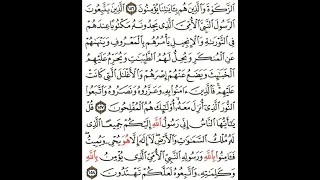 الزَّكَوٰةَ وَالَّذِينَ هُم بِـَٔايَٰتِنَا يُؤْمِنُونَ ١٥٦ الَّذِينَ يَتَّبِعُونَ
الرَّسُولَ النَّبِيَّ الْأُمِّيَّ الَّذِي يَجِدُونَهُۥ مَكْتُوبًا عِندَهُمْ
فِي التَّوْرَىٰةِ وَالْإِنجِيلِ يَأْمُرُهُم بِالْمَعْرُوفِ وَيَنْهَىٰهُمْ
عَنِ الْمُنكَرِ وَيُحِلُّ لَهُمُ الطَّيِّبَٰتِ وَيُحَرِّمُ عَلَيْهِمُ
الْخَبَٰٓئِثَ وَيَضَعُ عَنْهُمْ إِصْرَهُمْ وَالْأَغْلَٰلَ الَّتِي كَانَتْ
عَلَيْهِمْ فَالَّذِينَ ءَامَنُوا بِهِۦ وَعَزَّرُوهُ وَنَصَرُوهُ وَاتَّبَعُوا
النُّورَ الَّذِي أُنزِلَ مَعَهُۥٓ أُولَٰٓئِكَ هُمُ الْمُفْلِحُونَ ١٥٧ قُلْ
يَٰٓأَيُّهَا النَّاسُ إِنِّي رَسُولُ اللَّهِ إِلَيْكُمْ جَمِيعًا الَّذِي
لَهُۥ مُلْكُ السَّمَٰوَٰتِ وَالْأَرْضِ لَآ إِلَٰهَ إِلَّا هُوَ يُحْيِۦ وَيُمِيتُ
فَـَٔامِنُوا بِاللَّهِ وَرَسُولِهِ النَّبِيِّ الْأُمِّيِّ الَّذِي يُؤْمِنُ بِاللَّهِ
وَكَلِمَٰتِهِۦ وَاتَّبِعُوهُ لَعَلَّكُمْ تَهْتَدُونَ ١٥٨